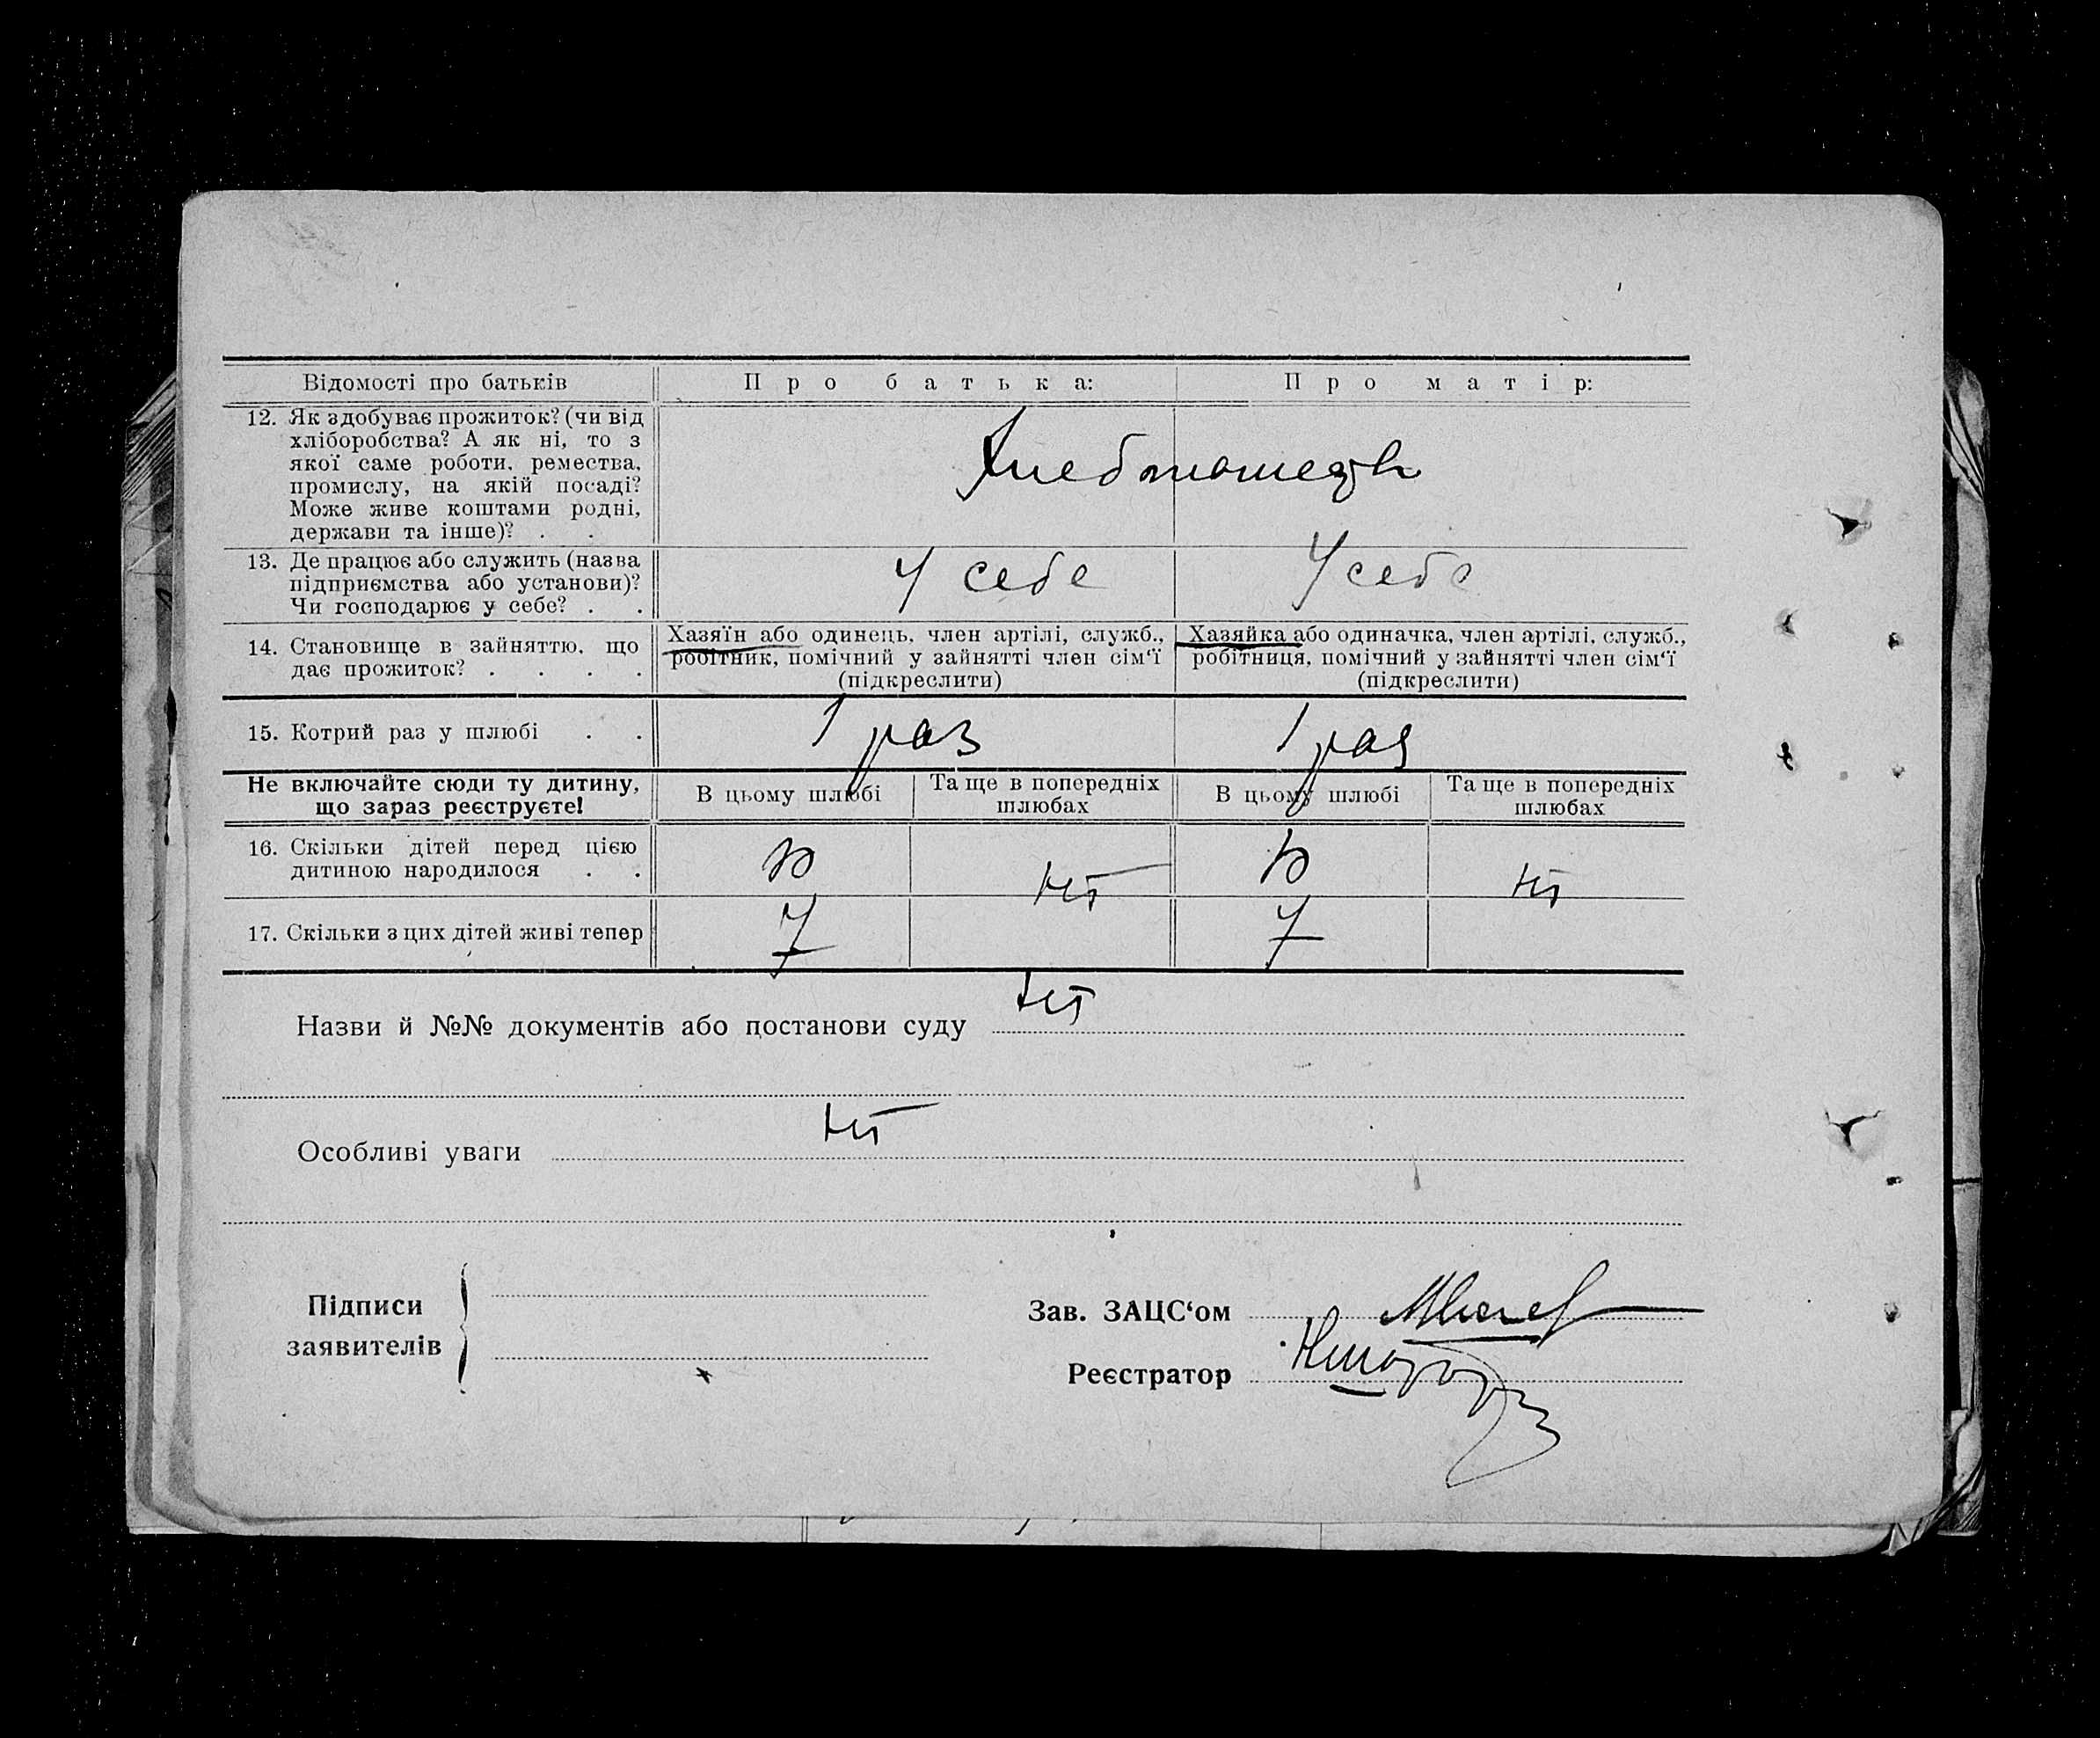 Відомості про батьків
Про батька:
Про матір:
12. Як здобуває прожиток? (чи від
хліборобства? А як ні, то з
якої саме роботи, ремества,
промислу, на якій посаді?
Може живе коштами родні,
держави та інше)? . .
13. Де працює або служить (назва
підприємства або установи)?
Чи господарює у себе? . .
У себе
У себе
14. Становище в зайняттю, що
дає прожиток? . . . .
Хазяїн або одинець, член артілі, служб.,
робітник, помічний у зайнятті член сім‘ї
(підкреслити)
Хазяйка або одиначка, член артілі, служб.,
робітниця, помічний у зайнятті член сім‘ї
(підкреслити)
15. Котрий раз у шлюбі . .
1 раз
1 раз
Не включайте сюди ту дитину,
що зараз реєструєте!
В цьому шлюбі
Та ще в попередніх
шлюбах
В цьому шлюбі
Та ще в попередніх
шлюбах
16. Скільки дітей перед цією
дитиною народилося . .
ні
ні
17. Скільки з цих дітей живі тепер
7
7
Назви й №№ документів або постанови суду ні
Особливі уваги ні
Підписи
заявителів
Зав. ЗАЦС‘ом
Реєстратор